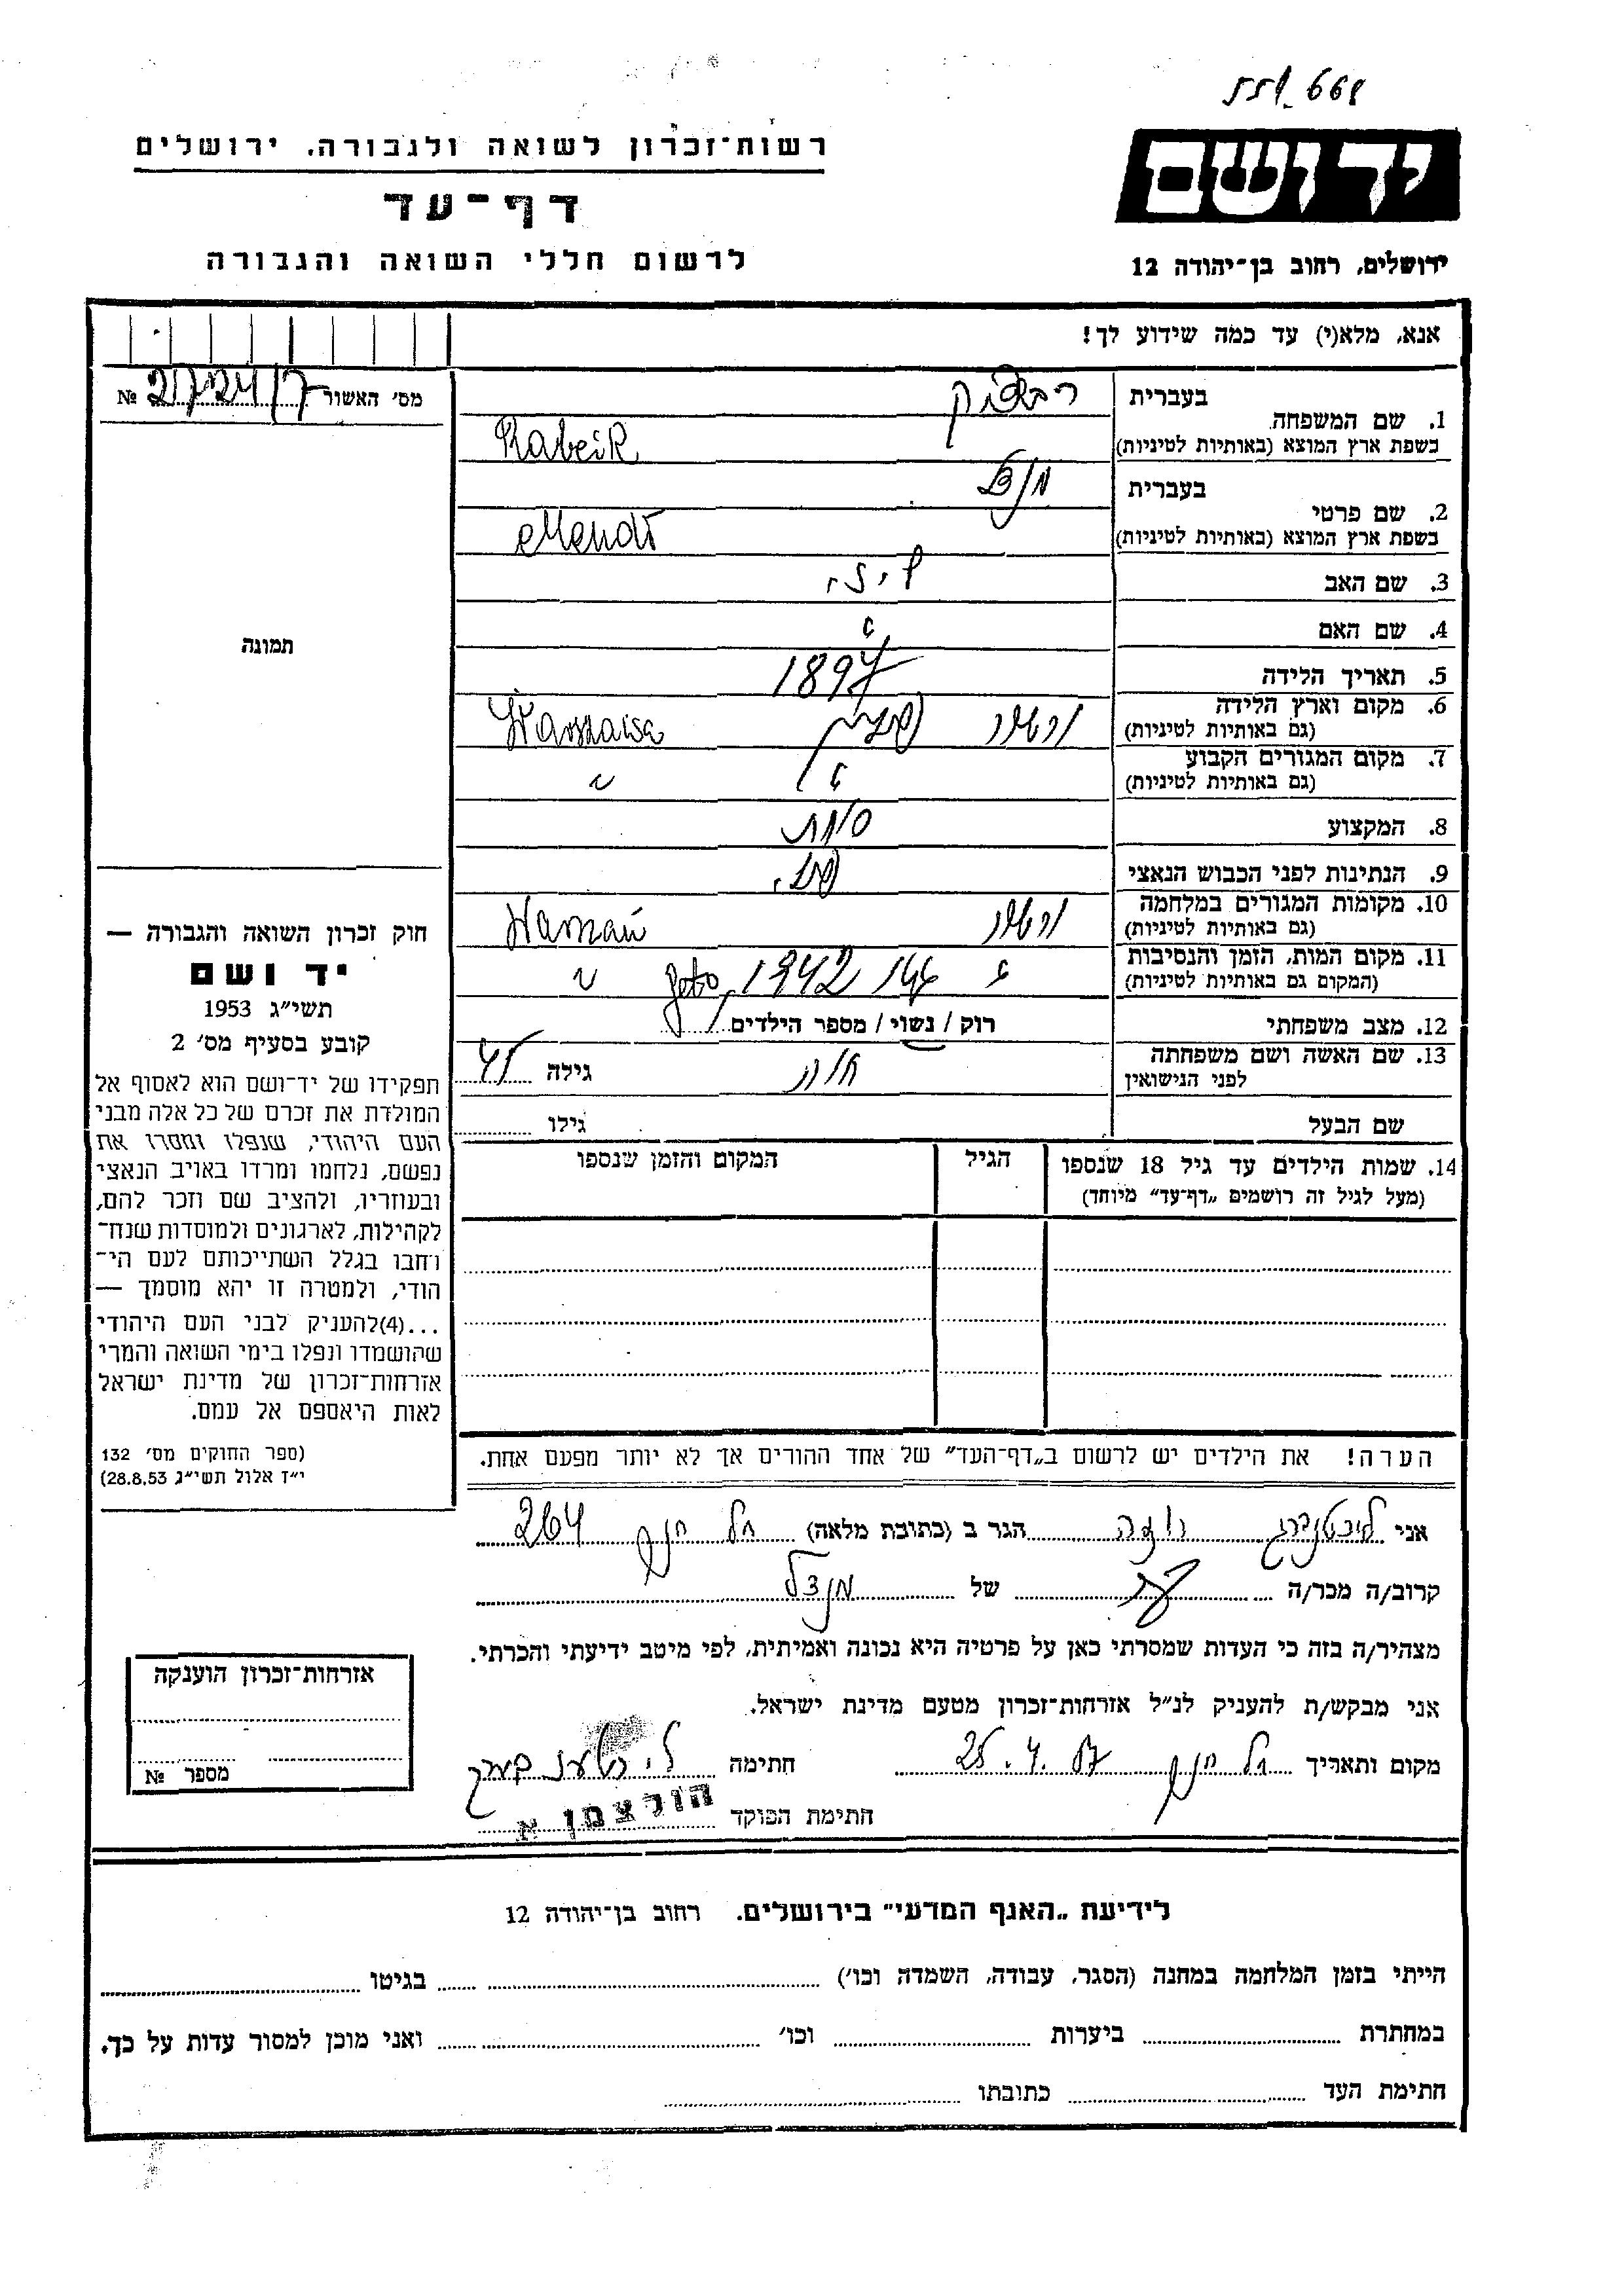 668
רשות־זכרון לשואה ולגבורה. ירושלים
יד ושם
דף־עד
לרשום חללי השואה והגבורה
ירושלים, רחוב בן־יהודה 12
אנא, מלא(י) עד כמה שידוע לך!
מס׳ האשור № 21724/7
1. שם המשפחה בעברית
בשפת ארץ המוצא (באותיות לטיניות) Rabeik
2. שם פרטי בעברית מנדל
בשפת ארץ המוצא (באותיות לטיניות) Mendl
3. שם האב
4. שם האם
5. תאריך הלידה 1897
6. מקום וארץ הלידה (גם באותיות לטיניות) ורשה פולין Warszawa
7. מקום המגורים הקבוע (גם באותיות לטיניות) " "
8. המקצוע סוחר
9. הנתינות לפני הכבוש הנאצי פול.
10. מקומות המגורים במלחמה (גם באותיות לטיניות) ורשה
11. מקום המות, הזמן והנסיבות (המקום גם באותיות לטיניות) " 1942 "
12. מצב משפחתי רוק / נשוי / מספר הילדים
13. שם האשה ושם משפחתה לפני הנישואין חוה גילה 45
שם הבעל גילו
14. שמות הילדים עד גיל 18 שנספו הגיל המקום והזמן שנספו
(מעל לגיל זה רושמים „דף־עד״ מיוחד)
תמונה
חוק זכרון השואה והגבורה —
יד ושם
תשי״ג 1953
קובע בסעיף מס׳ 2
תפקידו של יד־ושם הוא לאסוף אל
המולדת את זכרם של כל אלה מבני
העם היהודי, שנפלו ומסרו את
נפשם, נלחמו ומרדו באויב הנאצי
ובעוזריו, ולהציב שם וזכר להם,
לקהילות, לארגונים ולמוסדות שנח־
רחבו בגלל השתייכותם לעם הי־
הודי, ולמטרה זו יהא מוסמך —
...(4)להעניק לבני העם היהודי
שהושמדו ונפלו בימי השואה והמרי
אזרחות־זכרון של מדינת ישראל
לאות היאספם אל עמם.
(ספר החוקים מס׳ 132
י״ז אלול תשי״ג 28.8.53)
הערה! את הילדים יש לרשום ב„דף־העד״ של אחד ההורים אך לא יותר מפעם אחת.
אני ליכטנברג הגר ב (כתובת מלאה) תל חנן 264
קרוב/ה מכר/ה בת של מנדל
מצהיר/ה בזה כי העדות שמסרתי כאן על פרטיה היא נכונה ואמיתית, לפי מיטב ידיעתי והכרתי.
אני מבקש/ת להעניק לנ״ל אזרחות־זכרון מטעם מדינת ישראל.
מקום ותאריך תל חנן 25.4.57 חתימה
חתימת הפוקד הולצמן א
אזרחות־זכרון הוענקה
מספר №
לידיעת „האגף המדעי״ בירושלים. רחוב בן־יהודה 12
הייתי בזמן המלחמה במחנה (הסגר, עבודה, השמדה וכו׳) בגיטו
במחתרת ביערות וכו׳ ואני מוכן למסור עדות על כך.
חתימת העד כתובתו